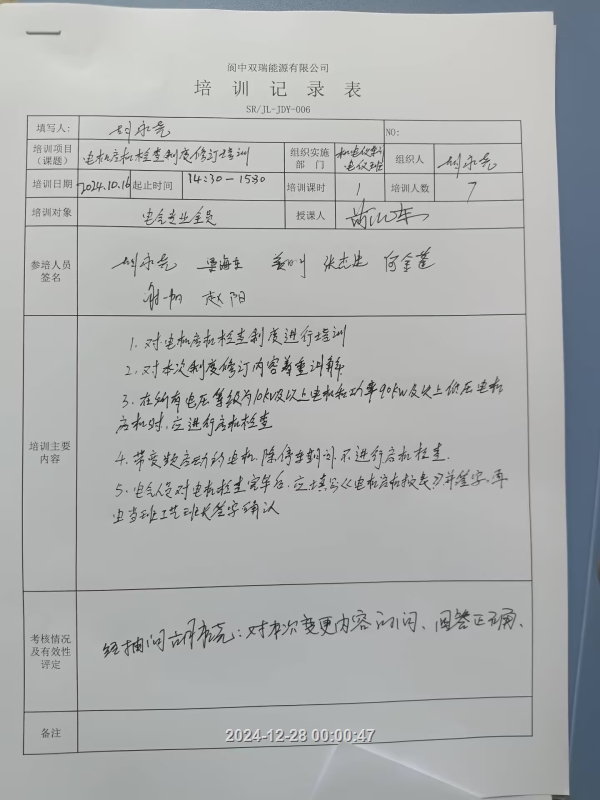 阆中双瑞能源有限公司
培训记录表
SR/JL-JDY-006
填写人: 刘永亮 NO:
培训项目（课题） 电机启机检查制度修订培训 组织实施部门 电仪班 组织人 刘永亮
培训日期 2024.10.16 起止时间 14:30-1530 培训课时 1 培训人数 7
培训对象 电气专业全员 授课人
参培人员签名 刘永亮 梁海生 姜川 张杰忠 何金莲
谢翔 赵阳
培训主要内容
1. 对电机启机检查制度进行培训
2. 对本次制度修订内容着重讲解
3. 在所有电压等级为10kV及以上电机和功率90kW及以上低压电机
启机时,应进行启机检查
4. 带变频启动的电机,除停车期间,不进行启机检查.
5. 电气人员对电机检查完毕后,应填写《电机启机报表》并签字,再
由当班工艺班长签字确认
考核情况及有效性评定
经抽问刘永亮:对本次变更内容的问、回答正确、
备注
2024-12-28 00:00:47